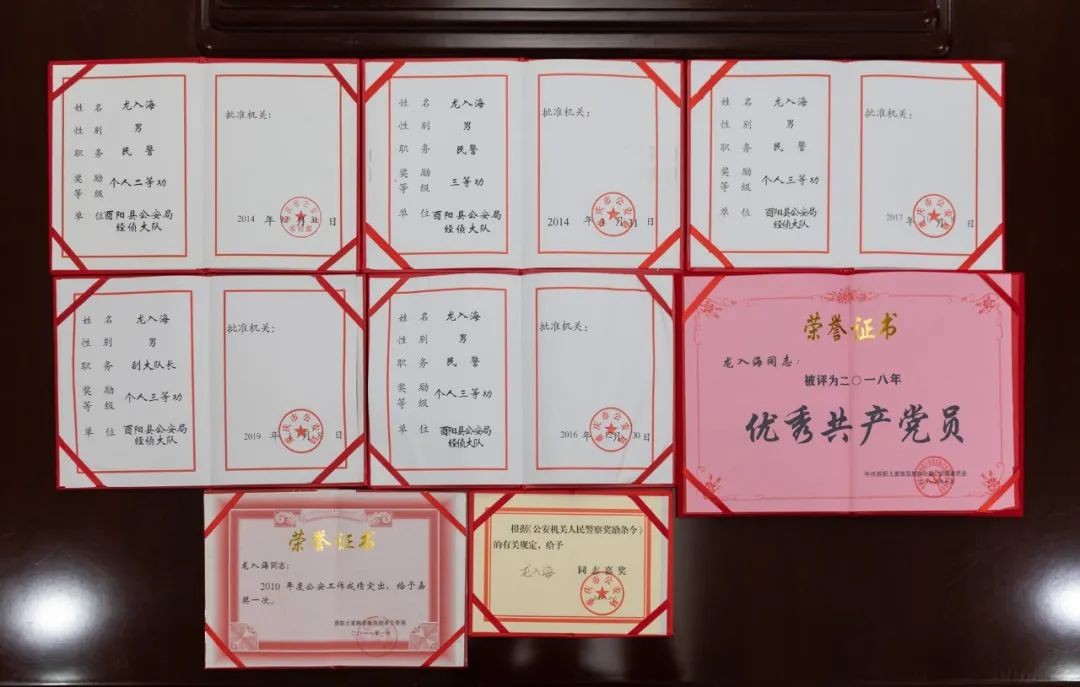 姓 名 龙入海
性 别 男
职 务 民 警
奖 励
等 级
个人二等功
单 位 酉阳县公安局
经侦大队
批准机关:
2014 年 月 日
姓 名 龙入海
性 别 男
职 务 民 警
奖 励
等 级
三等功
单 位 酉阳县公安局
经侦大队
批准机关:
2014 年 月31 日
重庆市公安局
姓 名 龙入海
性 别 男
职 务 民 警
奖 励
等 级
个人三等功
单 位 酉阳县公安局
经侦大队
批准机关:
2017 年 月 日
重庆市公安局
姓 名 龙入海
性 别 男
职 务 副大队长
奖 励
等 级
个人三等功
单 位 酉阳县公安局
经侦大队
批准机关:
2019 年 月 日
重庆市公安局
姓 名 龙入海
性 别 男
职 务 民 警
奖 励
等 级
个人三等功
单 位 酉阳县公安局
经侦大队
批准机关:
2016 年 12月 30 日
重庆市公安局
荣誉证书
龙入海同志:
被评为二〇一八年
优秀共产党员
荣誉证书
龙入海同志:
2010 年度公安工作成绩突出,给予嘉
奖一次。
二〇一一年一月
根据《公安机关人民警察奖励条令》
的有关规定,给予
龙入海 同志嘉奖
重庆市公安局